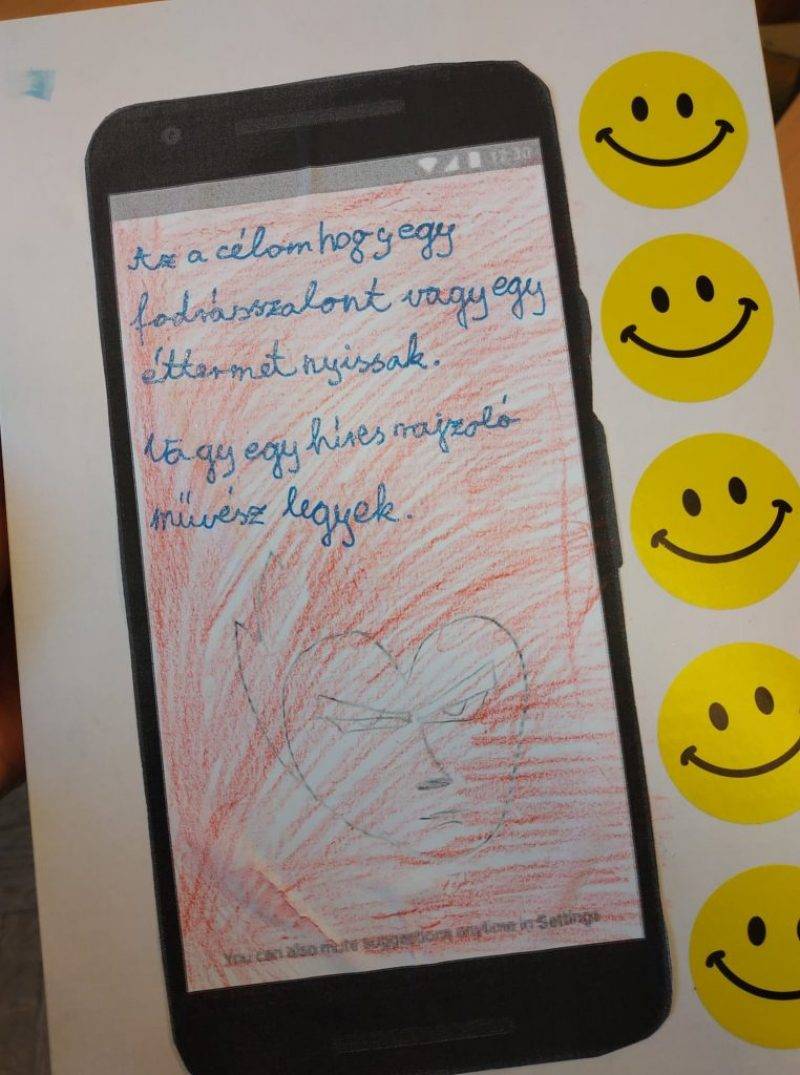 12:30
Az a célom hogy egy
fodrászszalont vagy egy
éttermet nyissak.
Vagy egy híres rajzoló
művész legyek.
You can also mute suggestions anytime in Settings